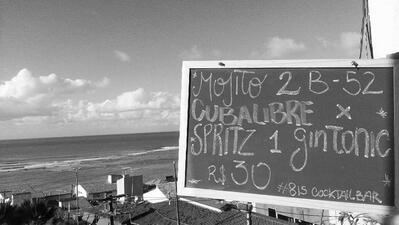 Mojito 2 B-52
CUBALIBRE
SPRITZ 1 ginTonic
R$30
#815 COCKTAILBAR